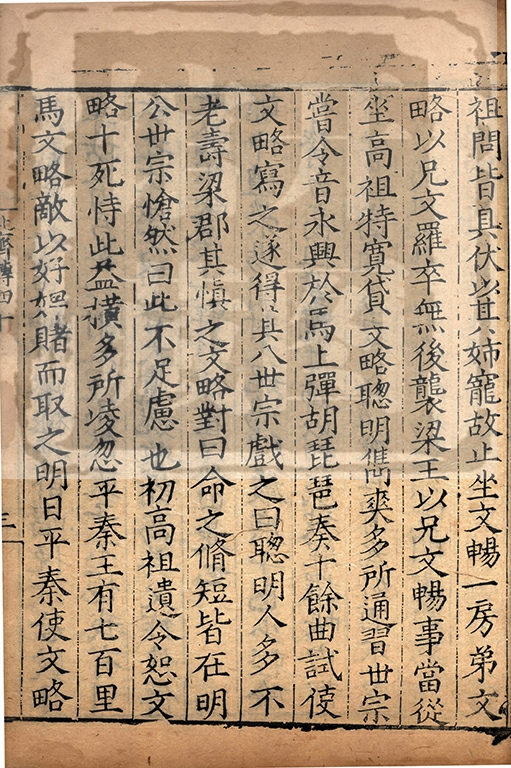 祖問皆具伏以其姊寵故止坐文暢一房弟文
略以兄文羅卒無後襲梁王以兄文暢事當從
坐高祖特寬貸文略聰明儁爽多所通習世宗
嘗令音永興於馬上彈胡琵琶奏十餘曲試使
文略寫之遂得其八世宗戲之曰聰明人多不
老壽梁郡其慎之文略對曰命之脩短皆在明
公世宗愴然曰此不足慮也初高祖遺令恕文
略十死恃此益橫多所凌忽平秦王有七百里
馬文略敵以好婢賭而取之明日平秦使文略
三